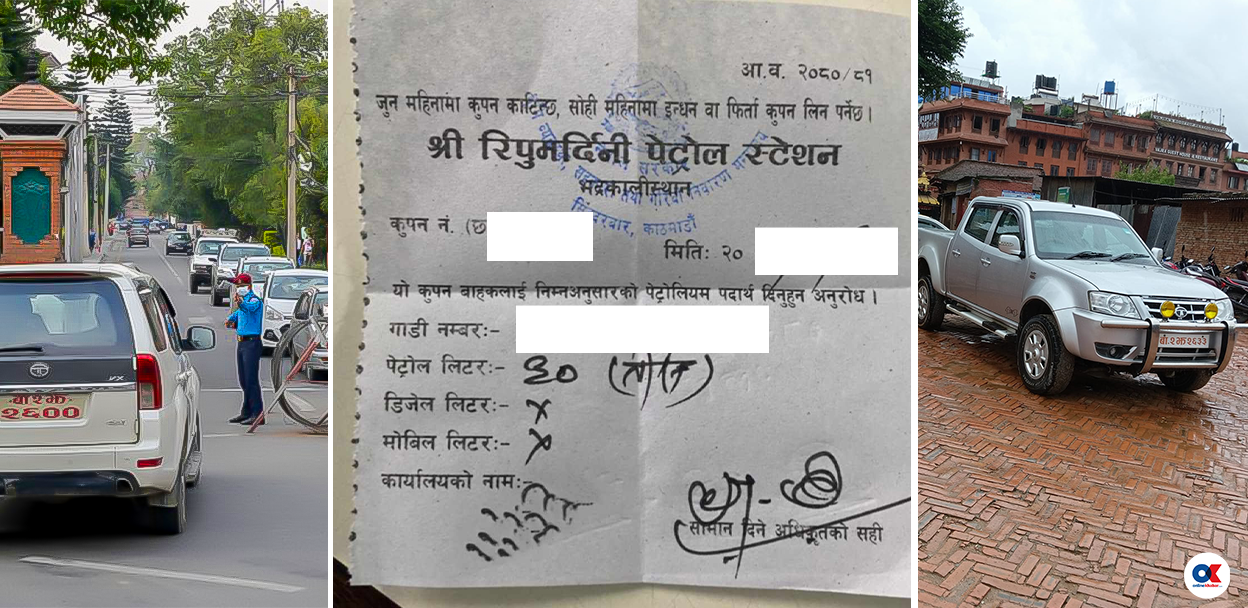 VX
बा२झ
२६००
आ.व. २०८०/८१
जुन महिनामा कुपन काटिन्छ, सोही महिनामा इन्धन वा फिर्ता कुपन लिन पर्नेछ।
श्री रिपुमर्दिनी पेट्रोल स्टेशन
भद्रकालीस्थान
सिंहदरवार, काठमाडौं
कुपन नं. (छ
मितिः २०
यो कुपन बाहकलाई निम्नअनुसारको पेट्रोलियम पदार्थ दिनुहुन अनुरोध।
गाडी नम्बरः-
पेट्रोल लिटरः- ३०
डिजेल लिटरः- x
मोबिल लिटरः- x
कार्यालयको नामः-
सामान दिने अधिकृतको सही
बा.२झ२६३३
onlinekhabar.com